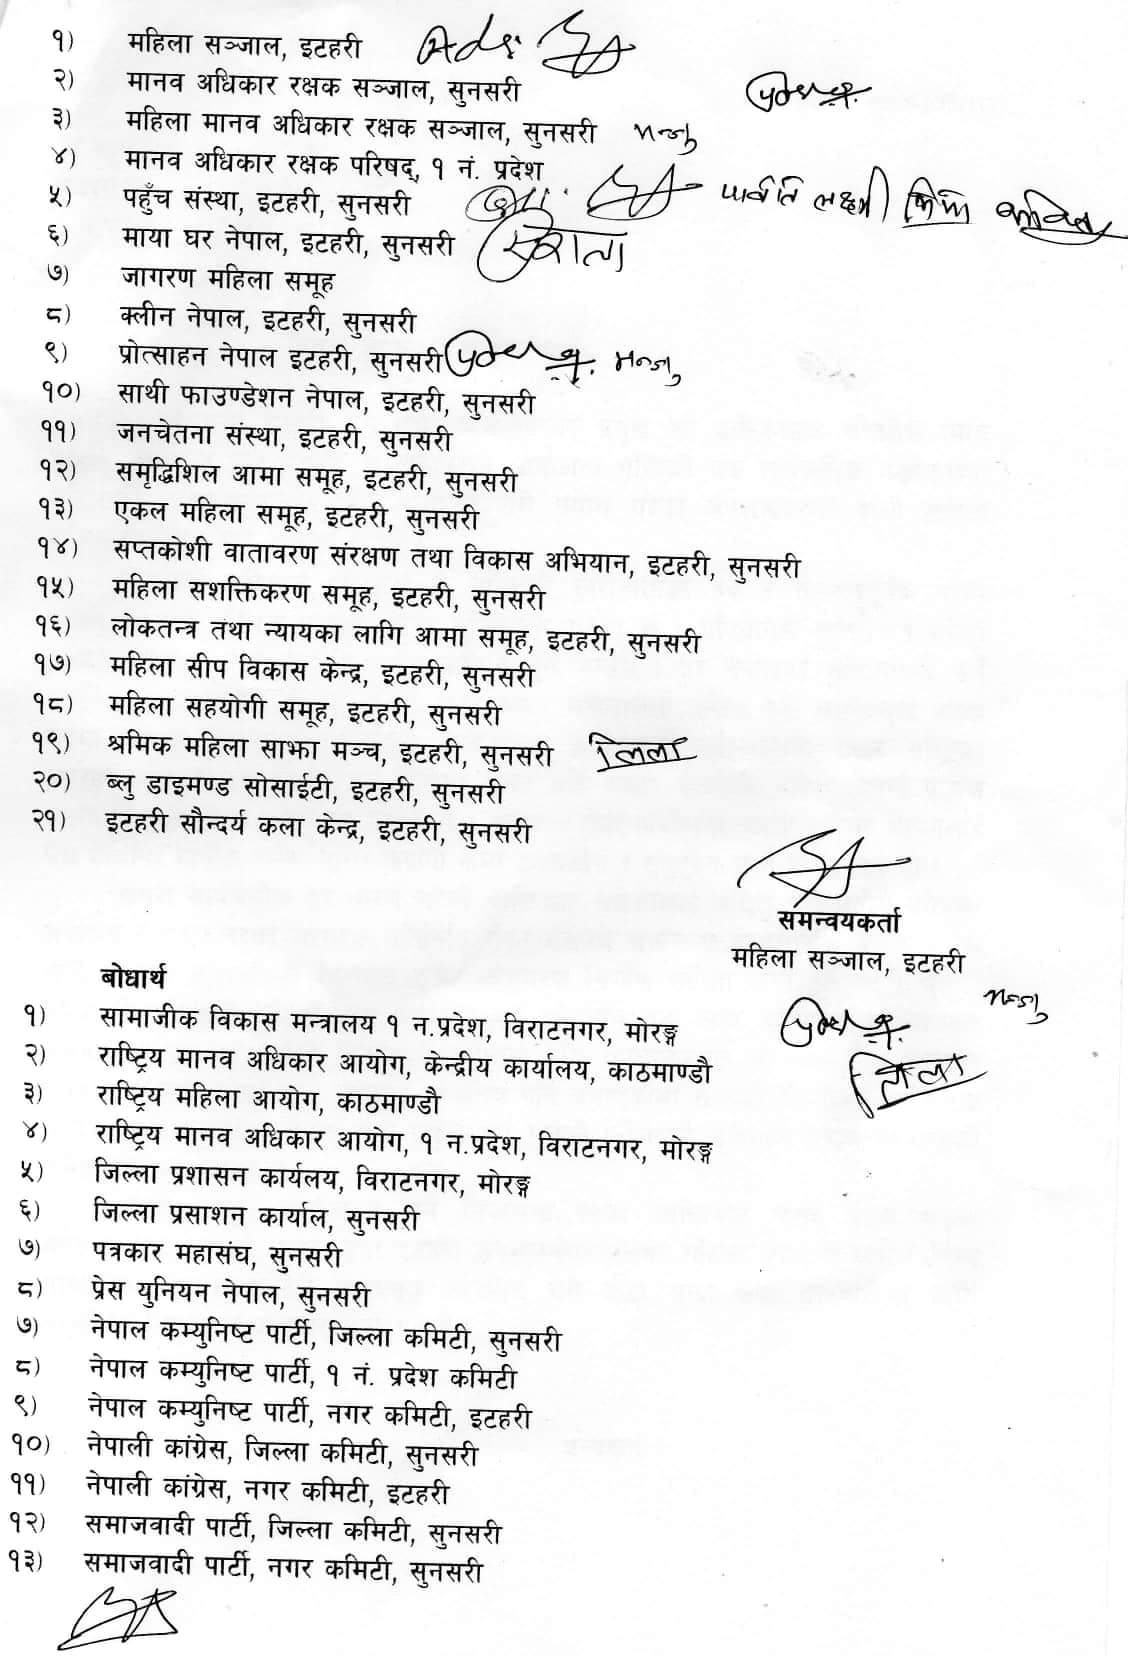 १) महिला सञ्जाल, इटहरी
२) मानव अधिकार रक्षक सञ्जाल, सुनसरी
३) महिला मानव अधिकार रक्षक सञ्जाल, सुनसरी मन्जु
४) मानव अधिकार रक्षक परिषद्, १ नं. प्रदेश
५) पहुँच संस्था, इटहरी, सुनसरी पार्वति लक्ष्मी
६) माया घर नेपाल, इटहरी, सुनसरी
७) जागरण महिला समूह
८) क्लीन नेपाल, इटहरी, सुनसरी
९) प्रोत्साहन नेपाल इटहरी, सुनसरी मन्जु
१०) साथी फाउण्डेशन नेपाल, इटहरी, सुनसरी
११) जनचेतना संस्था, इटहरी, सुनसरी
१२) समृद्धिशिल आमा समूह, इटहरी, सुनसरी
१३) एकल महिला समूह, इटहरी, सुनसरी
१४) सप्तकोशी वातावरण संरक्षण तथा विकास अभियान, इटहरी, सुनसरी
१५) महिला सशक्तिकरण समूह, इटहरी, सुनसरी
१६) लोकतन्त्र तथा न्यायका लागि आमा समूह, इटहरी, सुनसरी
१७) महिला सीप विकास केन्द्र, इटहरी, सुनसरी
१८) महिला सहयोगी समूह, इटहरी, सुनसरी
१९) श्रमिक महिला साझा मञ्च, इटहरी, सुनसरी लिला
२०) ब्लु डाइमण्ड सोसाईटी, इटहरी, सुनसरी
२१) इटहरी सौन्दर्य कला केन्द्र, इटहरी, सुनसरी
समन्वयकर्ता
महिला सञ्जाल, इटहरी
मन्जु
बोधार्थ
१) सामाजीक विकास मन्त्रालय १ न.प्रदेश, विराटनगर, मोरङ्ग
२) राष्ट्रिय मानव अधिकार आयोग, केन्द्रीय कार्यालय, काठमाण्डौ
३) राष्ट्रिय महिला आयोग, काठमाण्डौ
४) राष्ट्रिय मानव अधिकार आयोग, १ न.प्रदेश, विराटनगर, मोरङ्ग
५) जिल्ला प्रशासन कार्यलय, विराटनगर, मोरङ्ग
६) जिल्ला प्रसाशन कार्याल, सुनसरी
७) पत्रकार महासंघ, सुनसरी
८) प्रेस युनियन नेपाल, सुनसरी
७) नेपाल कम्युनिष्ट पार्टी, जिल्ला कमिटी, सुनसरी
८) नेपाल कम्युनिष्ट पार्टी, १ नं. प्रदेश कमिटी
९) नेपाल कम्युनिष्ट पार्टी, नगर कमिटी, इटहरी
१०) नेपाली कांग्रेस, जिल्ला कमिटी, सुनसरी
११) नेपाली कांग्रेस, नगर कमिटी, इटहरी
१२) समाजवादी पार्टी, जिल्ला कमिटी, सुनसरी
१३) समाजवादी पार्टी, नगर कमिटी, सुनसरी